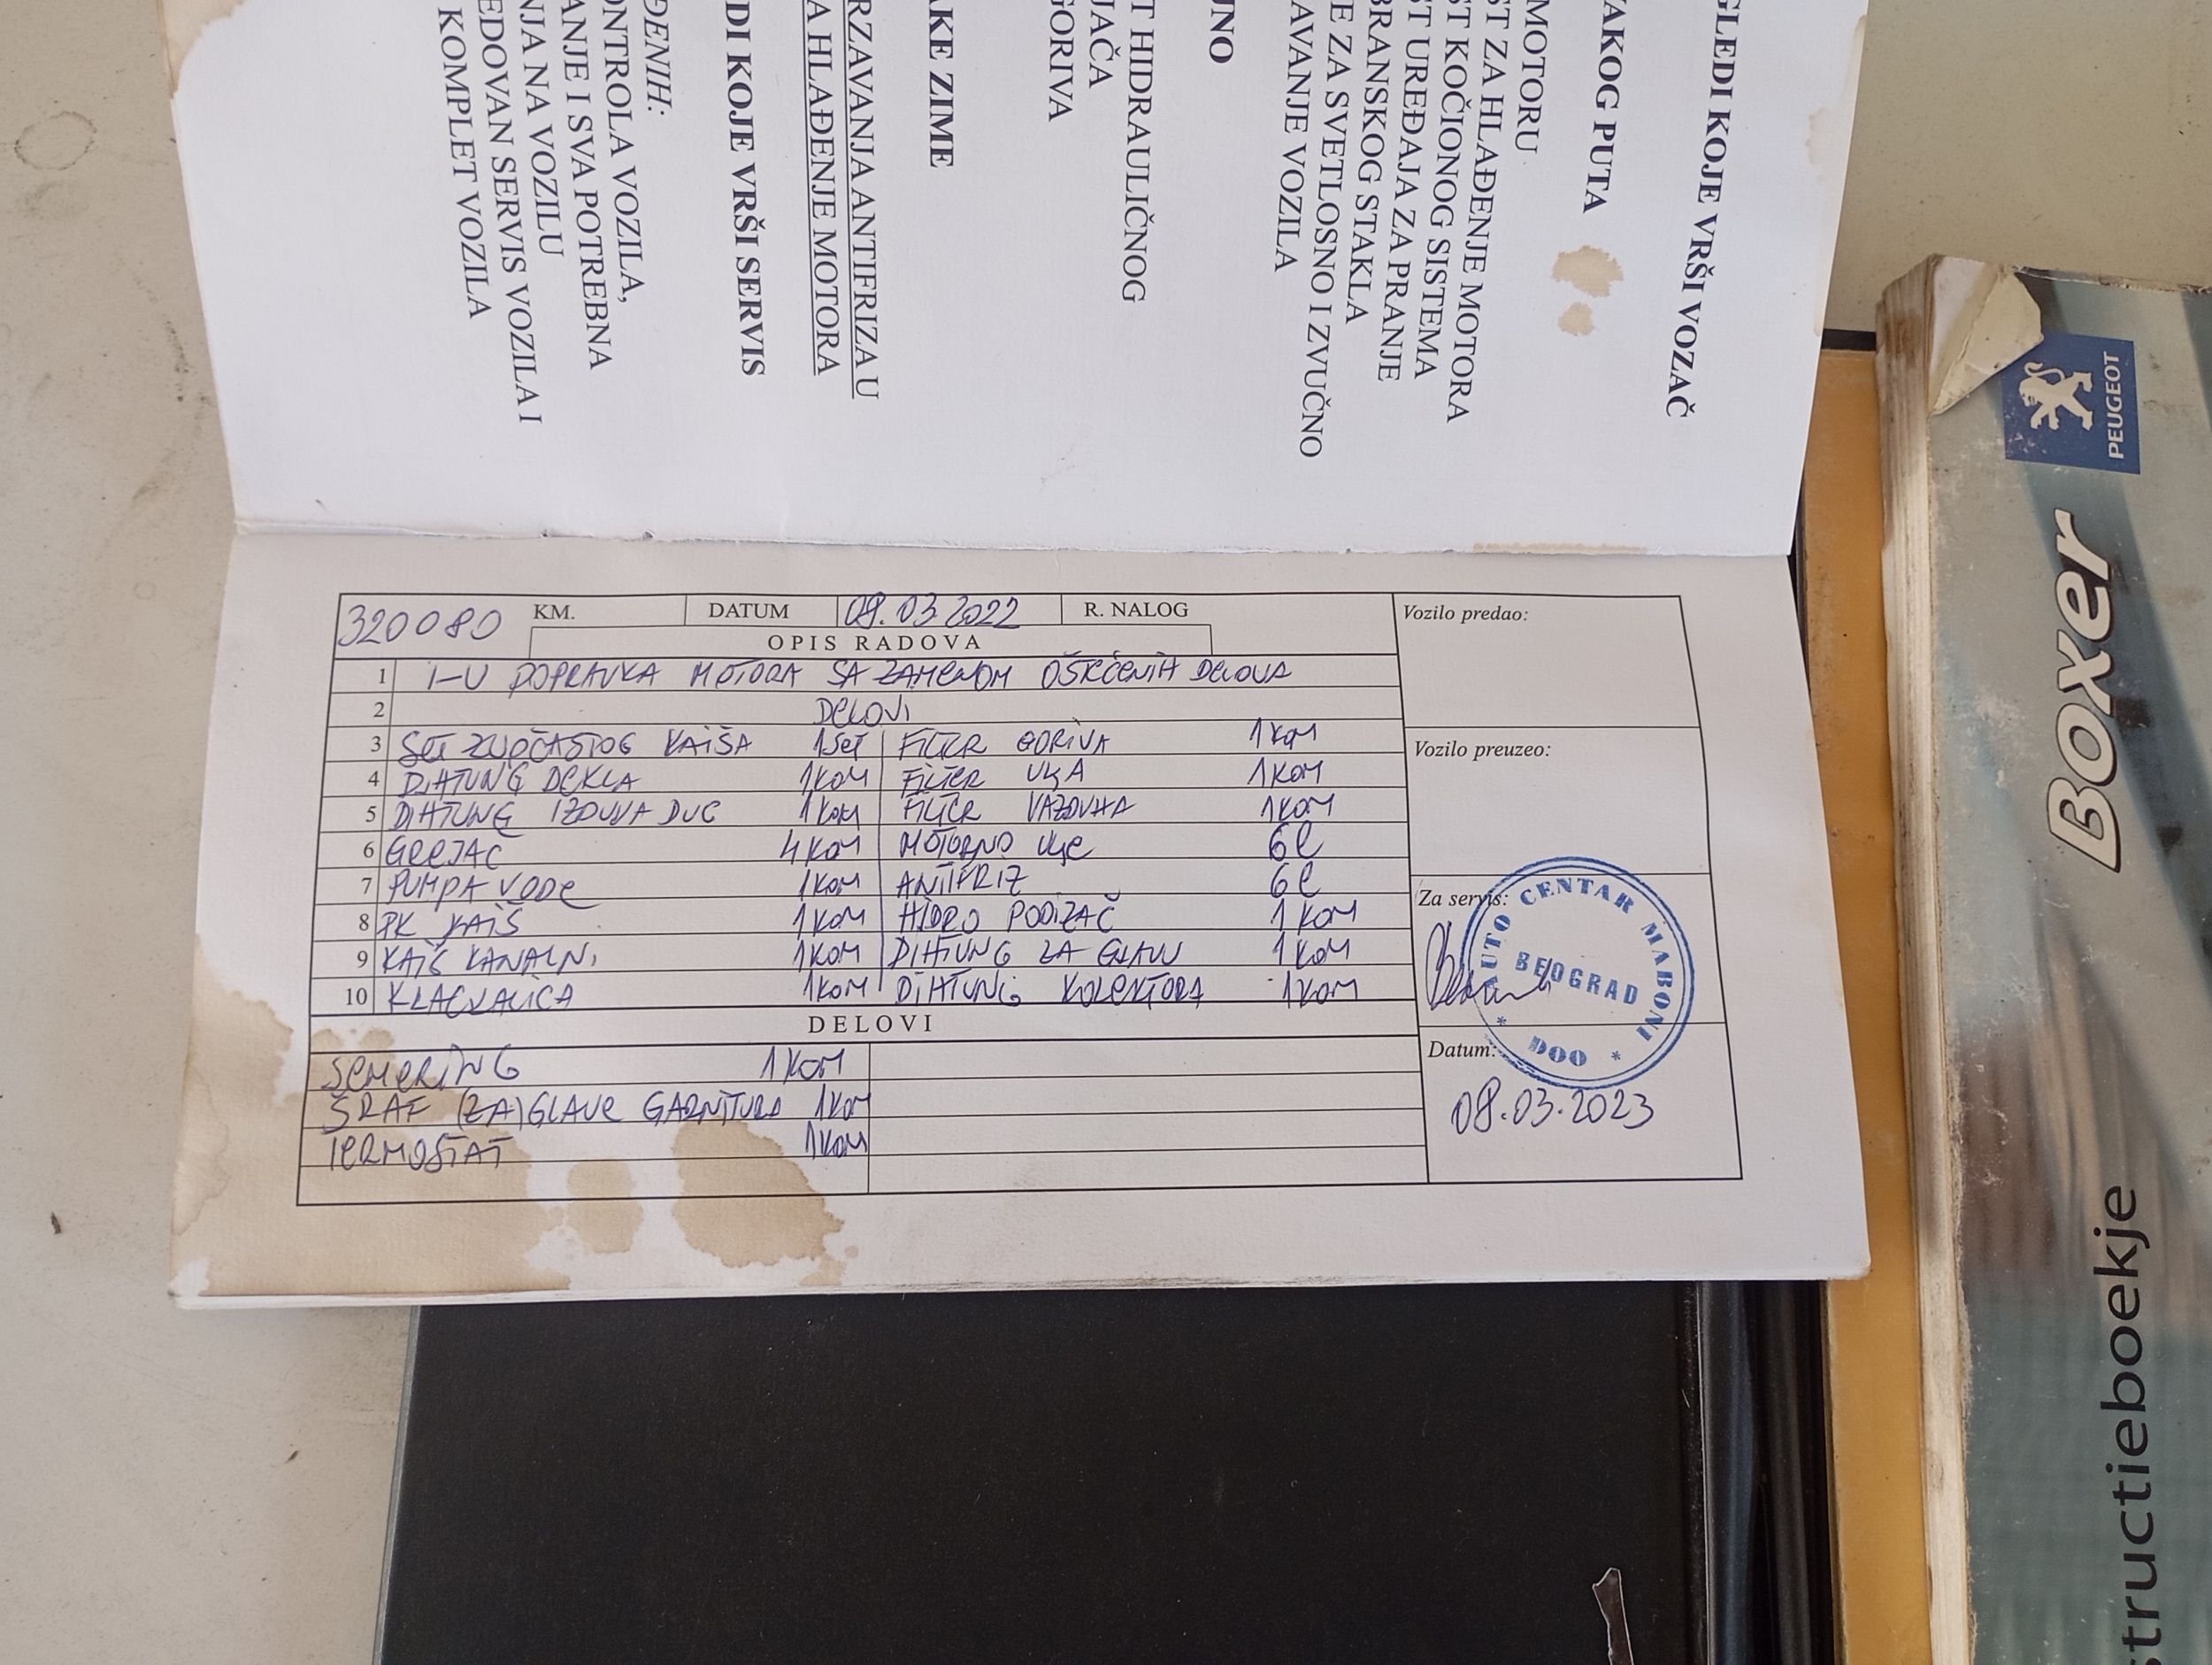 GLEDI KOJE VRŠI VOZAČ
VAKOG PUTA
MOTORU
ST ZA HLAĐENJE MOTORA
ST KOČIONOG SISTEMA
ST UREĐAJA ZA PRANJE
BRANSKOG STAKLA
E ZA SVETLOSNO I ZVUČNO
AVANJE VOZILA
JNO
T HIDRAULIČNOG
JAČA
GORIVA
AKE ZIME
RZAVANJA ANTIFRIZA U
A HLAĐENJE MOTORA
DI KOJE VRŠI SERVIS
ĐENIH:
ONTROLA VOZILA,
ANJE I SVA POTREBNA
NJA NA VOZILU
EDOVAN SERVIS VOZILA I
KOMPLET VOZILA
320080 KM. DATUM 08.03.2022 R. NALOG
OPIS RADOVA
1 I-U POPRAVKA MOTORA SA ZAMENOM OŠEĆENIH DELOVA
2 DELOVI
3 SET ZUPČASTOG KAIŠA 1SET FILTER GORIVA 1KOM
4 DIHTUNG DEKLA 1KOM FILTER ULJA 1KOM
5 DIHTUNG IZDUVA DUG 1KOM FILTER VAZDUHA 1KOM
6 GREJAČ 4KOM MOTORNO ULJE 6l
7 PUMPA VODE 1KOM ANTIFRIZ 6l
8 PK KAIŠ 1KOM HIDRO PODIZAČ 1KOM
9 KAIŠ KANALNI 1KOM DIHTUNG ZA GLAVU 1KOM
10 KLACKALICA 1KOM DIHTUNG KOLEKTORA 1KOM
DELOVI
SEMERING 1KOM
ŠRAF (ZA) GLAVE GARNITURA 1KOM
TERMOSTAT 1KOM
Vozilo predao:
Vozilo preuzeo:
Za servis:
AUTO CENTAR MABONI
BEOGRAD
* DOO *
Datum:
08.03.2023
PEUGEOT
Boxer
structieboekje